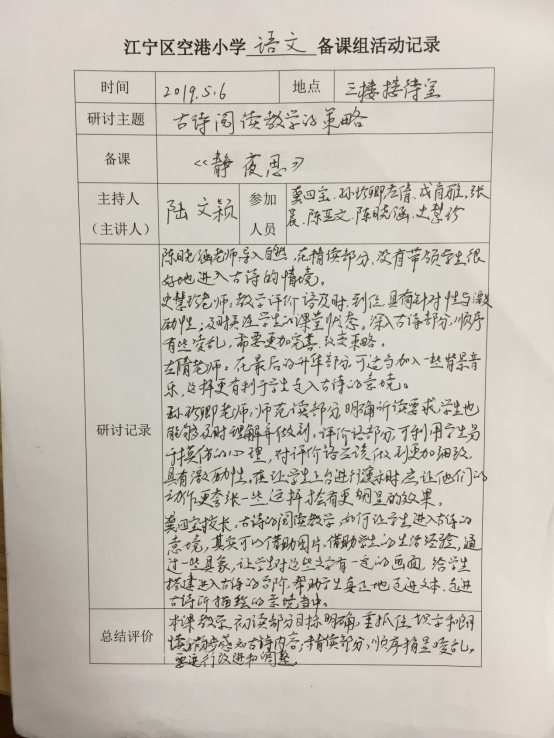 江宁区空港小学 语文 备课组活动记录
时间 2019.5.6 地点 三楼接待室
研讨主题 古诗阅读教学的策略
备课 《静夜思》
主持人（主讲人） 陆文颖 参加人员 龚四宝、孙玲卿、左隋、戎肖雅、张
晨、陈亚文、陈晓涵、史慧珍
研讨记录
陈晓涵老师：导入自然，在精读部分，没有带领学生很
好地进入古诗的情境。
史慧珍老师：教学评价语及时、到位，具有针对性与激
励性；及时关注学生的课堂状态，深入古诗部分，顺序
有些凌乱，需要更加完善，改变策略。
左隋老师：在最后的升华部分可适当加入一些背景音
乐，这样更有利于学生走入古诗的意境。
孙玲卿老师：师范读部分明确听读要求，学生也
能够及时理解并做到，评价语部分，可利用学生易
于模仿的心理，对评价语应该做到更加细致，
具有激励性。在让学生上台进行演示时应让他们的
动作更夸张一些，这样才会有更明显的效果。
龚四宝校长：古诗的阅读教学，如何让学生进入古诗的
意境，其实可以借助图片，借助学生的生活经验，通
过一些具象，让学生对这些文字有一定的画面，给学生
搭建进入古诗的台阶，帮助学生真正地走进文本，走进
古诗所描绘的意境当中。
总结评价
本课教学，初读部分目标明确，重抓住识字和朗
读，初步感知古诗内容；精读部分，顺序稍显凌乱，
要进行改进和调整。